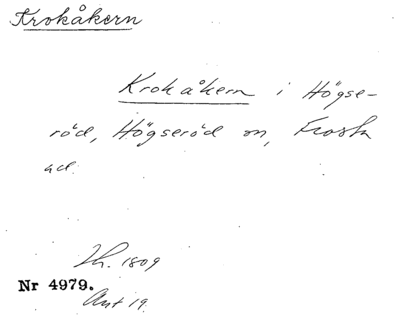 Krokåkern
Krokåkern i Högse-
röd, Högseröd sn, Frosta
hd.
Th. 1809
Nr 4979.
Akt 19.